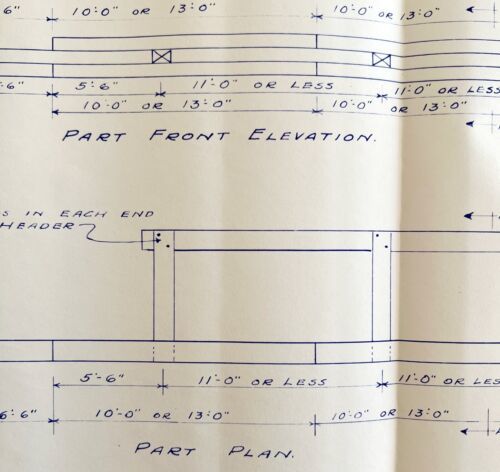 6" 10'-0" OR 13'-0" 10'-0" OR 13'-0"
-6" 5'-6" 11'-0" OR LESS 11'-0" OR LESS
10'-0" OR 13'-0" 10'-0" OR 13'-0"
PART FRONT ELEVATION.
S IN EACH END
HEADER
5'-6" 11'-0" OR LESS 11'-0" OR LESS
6'6" 10'-0" OR 13'-0" 10'-0" OR 13'-0"
PART PLAN.